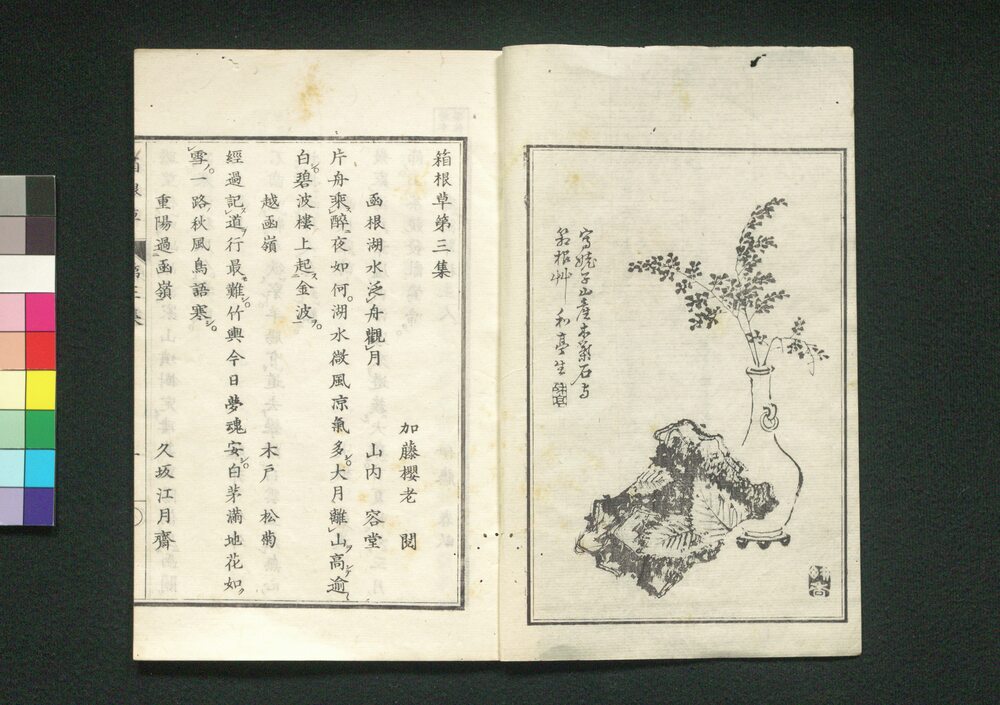 寫姥子山産木葉石与
箱根艸 和亭生
箱根草第三集
加藤櫻老 閲
函根湖水泛舟觀月 山内容堂
片舟乘醉夜如何湖水微風凉氣多大月離山高逾
白碧波樓上起金波
越函嶺 木戸松菊
經過記道行最難竹輿今日夢魂安白茅滿地花如
雪一路秋風鳥語寒
重陽過函嶺 久坂江月齊